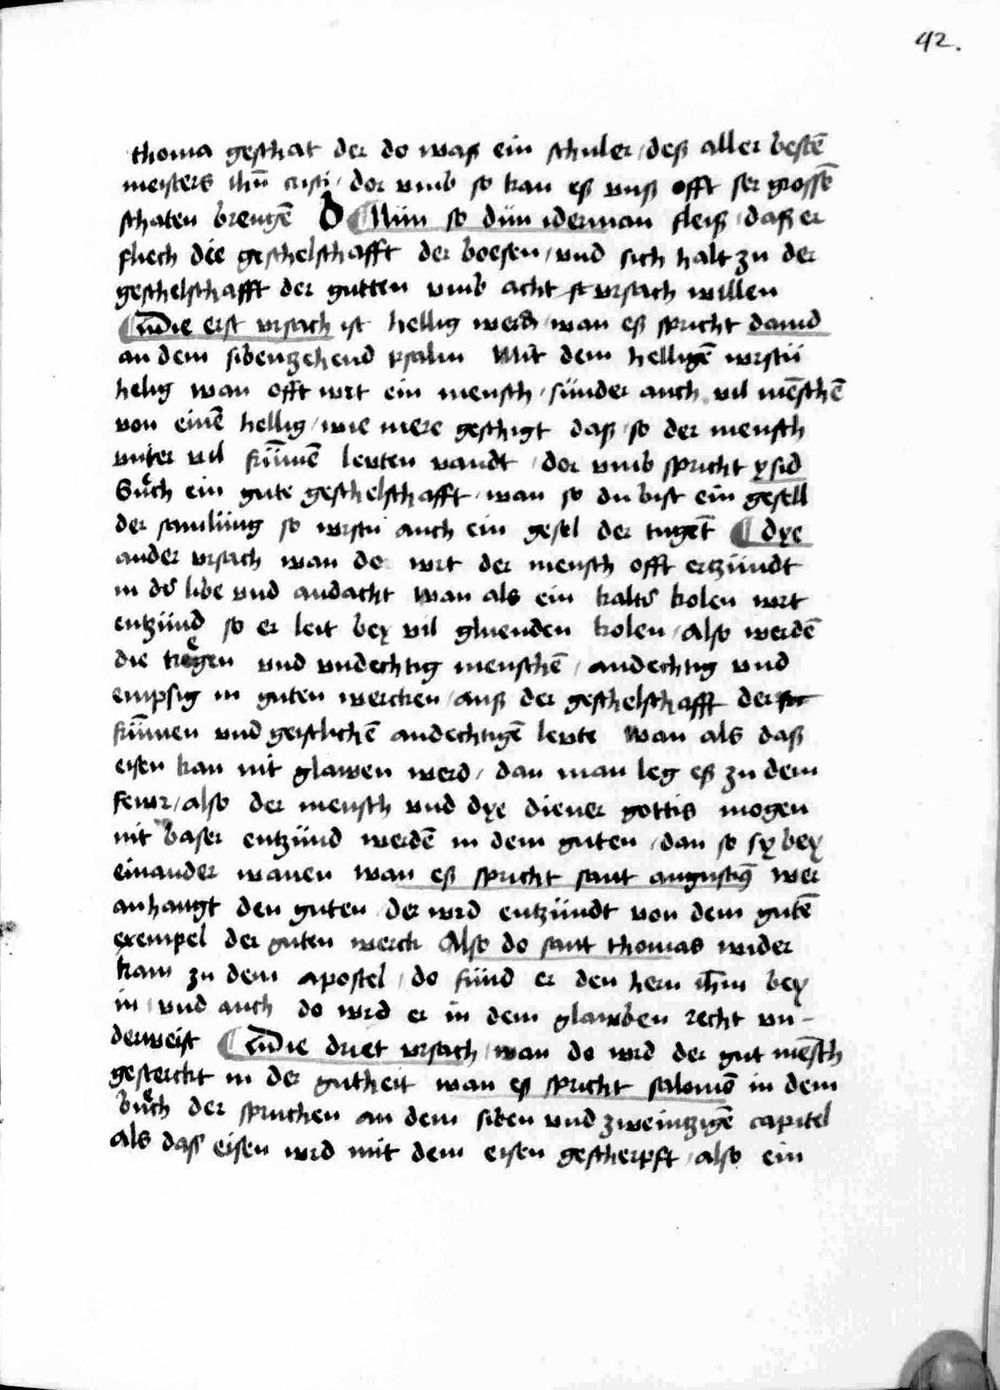 42.
thoma geschat der do waß ein schuler / deß aller bestē
meisters ihū cristi / dor umb so kan eß unß offt ser grossē
schaten brengē Nün so dün iderman fleiß / daß er
fliech die geschelschafft der boesen / und sich halt zu der
geschelschafft der gutten umb acht ursach willen
die erst ursach ist hellig werdn / wan eß spricht dauid
an dem sibentzehend psalm Mit dem helligē wrstü
helig wan offt wrt ein mensch / sünder auch vil mēschē
von einē hellig / wie mere geschigt daß / so der mensch
unter vil frümē leuten wandt / dor umb spricht ysid
Such ein gute geschelschafft / wan so du bist ein gesell
der samlüng so wrstu auch ein gesel der tugēt dye
ander ursach wan do wrt der mensch offt ertzündt
in der libe und andacht wan als ein kalter kolen wrt
entzünd so er leit bey vil gluenden kolen / also werdē
die tregen und undechtig menschē / andechtig und
empsig in guten wercken / auß der geschelschafft der
frümen und geistlichē andechtigē leute wan als daß
eisen kan nit glawen werd / dan man leg eß zu dem
fewr / also der mensch und dye diener gottis mogen
nit baser entzünd werdē in dem guten / dan so sy bey
einander wanen wan eß spricht sant augustiq wer
anhangt den guten der wrd entzündt von dem gutē
exempel der guten werck Also do sant thomas wider
kam zu dem apostel / do fünd er den hern ihm bey
in / und auch do wrd er in dem glawben recht un-
derweist die driet ursach / wan do wrd der gut mēsch
gesterckt in der gutheit wan eß spricht salomō in dem
buch der spruchen an dem siben und zweintzigē capitel
als daß eisen wrd mit dem eisen gescherpft / also ein